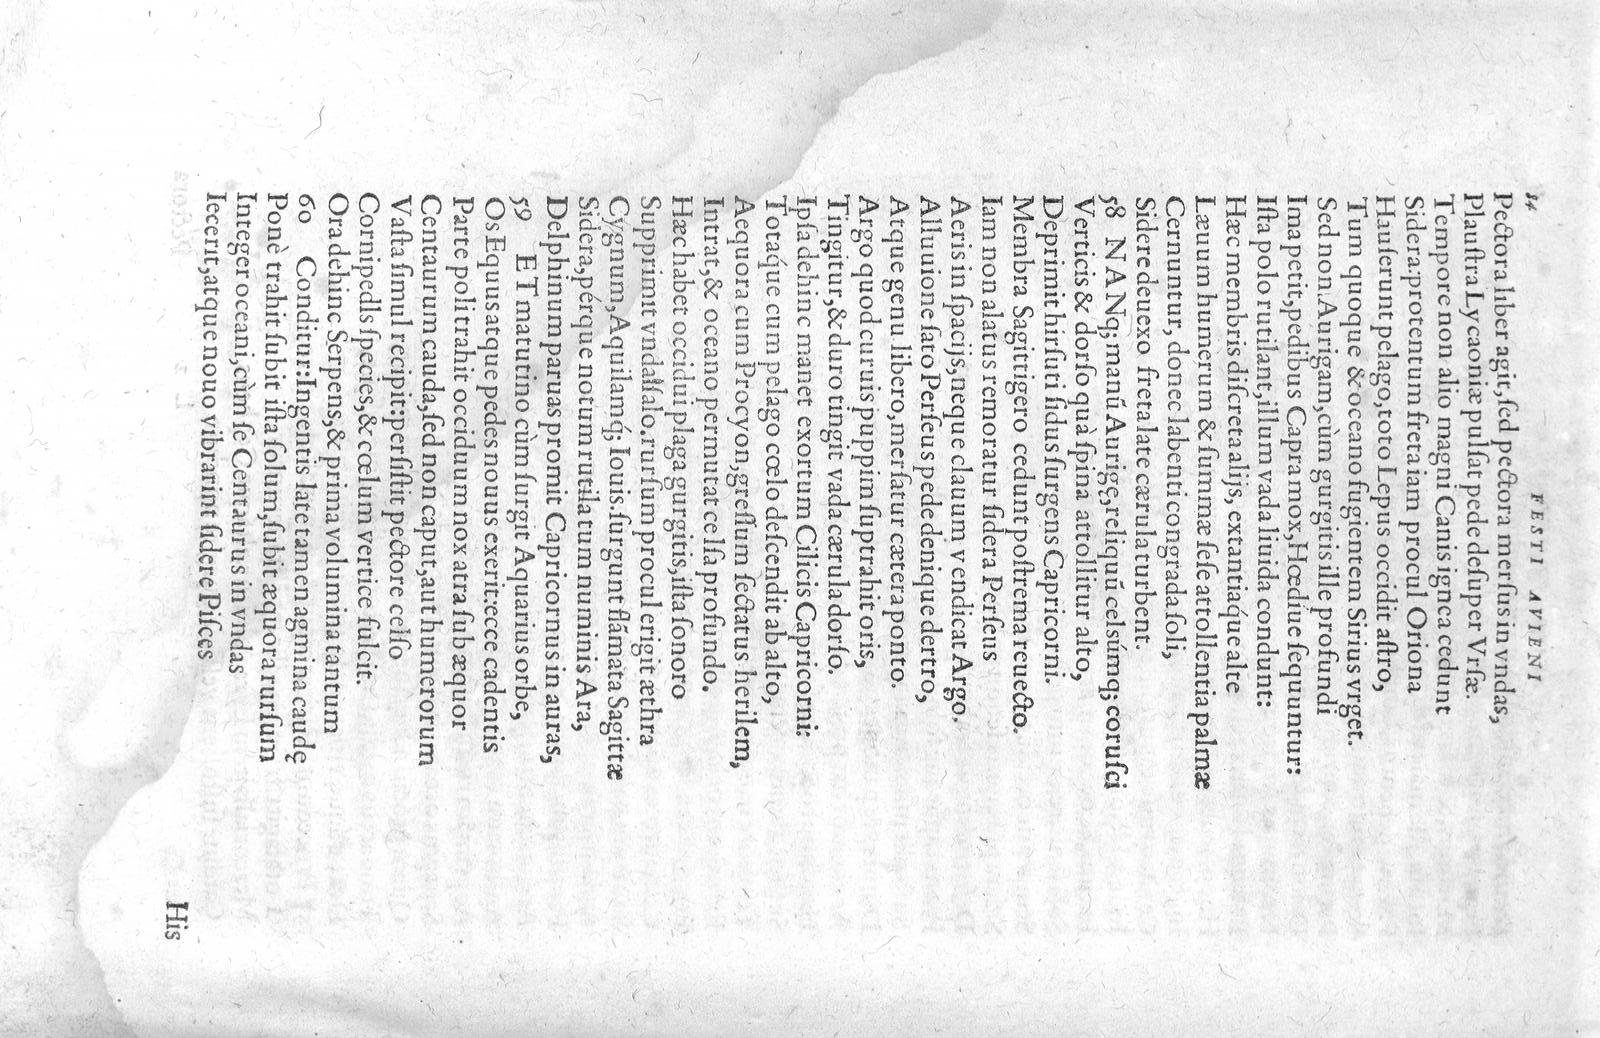 34 FESTI AVIENI
Pectora liber agit, ſed pectora merſus in vndas,
Plauſtra Lycaoniæ pulſat pede deſuper Vrſæ.
Tempore non alio magni Canis ignea cedunt
Sidera: protentum freta iam procul Oriona
Hauſerunt pelago, toto Lepus occidit aſtro,
Tum quoque & oceano fugientem Sirius vrget.
Sed non Aurigam, cùm gurgitis ille profundi
Ima petit, pedibus Capra mox, Hœdiue ſequuntur:
Iſta polo rutilant, illum vada liuida condunt:
Hæc membris diſcreta alijs, extantiaq́ue alte
Læuum humerum & ſummæ ſeſe attollentia palmæ
Cernuntur, donec labenti congrada ſoli,
Sidere deuexo freta late cærula turbent.
58 NANq; manũ Aurigę, reliquũ celsúmq; coruſci
Verticis & dorſo quà ſpina attollitur alto,
Deprimit hirſuti ſidus ſurgens Capricorni.
Membra Sagittigero cedunt poſtrema reuecto.
Iam non alatus remoratur ſidera Perſeus
Aeris in ſpacijs, neque clauum vendicat Argo.
Alluuione ſato Perſeus pede denique dertro,
Atque genu libero, merſatur cætera ponto.
Argo quod curuis puppim ſuptrahit oris,
Tingitur, & duro tingit vada cærula dorſo.
Ipſa dehinc manet exortum Cilicis Capricorni:
Totaq́ue cum pelago cœlo deſcendit ab alto,
Aequora cum Procyon, greſſum ſectatus herilem,
Intrat, & oceano permutat celſa profundo.
Hæc habet occidui plaga gurgitis, iſta ſonoro
Supprimit vnda ſalo. rurſum procul erigit æthra
Cygnum, Aquilamq́; Iouis. ſurgunt flámata Sagittæ
Sidera, pérque notum rutila tum numinis Ara,
Delphinum paruas promit Capricornus in auras,
59 ET matutino cùm ſurgit Aquarius orbe,
Os Equus atque pedes nouus exerit: ecce cadentis
Parte poli trahit occiduum nox atra ſub æquor
Centaurum cauda, ſed non caput, aut humerorum
Vaſta ſimul recipit: perſiſtit pectore celſo
Cornipedls ſpecies, & cœlum vertice fulcit.
Ora dehinc Serpens, & prima volumina tantum
60 Conditur: Ingentis late tamen agmina caudę
Ponè trahit ſubit iſta ſolum, ſubit æquora rurſum
Integer oceani, cùm ſe Centaurus in vndas
Iecerit, atque nouo vibrarint ſidere Piſces
His